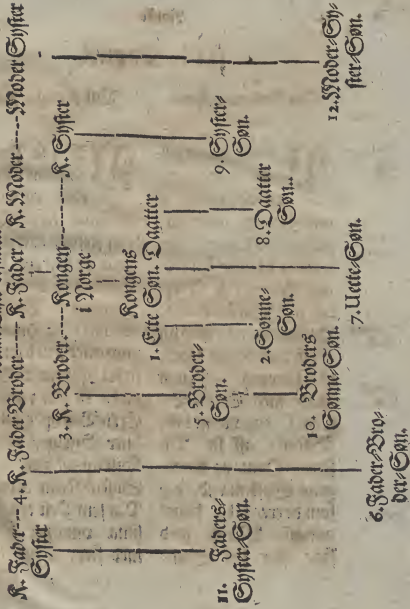 K. Fader --- 4. K. Fader Broder ----- K. Fader / K. Moder ---- Moder Syster
Syster
3. K. Broder ---- Kongen ------- K. Syster
i Norge
Kongens
1. Ecte Søn. Daatter
2. Sønne⸗
Søn.
8. Daatter
Søn..
9. Syster⸗
Søn.
5. Broder⸗
Søn.
10. Broders
Sønne⸗Søn.
7. Uecte⸗Søn.
12. Moder⸗Sy⸗
ster⸗Søn.
11. Faders⸗
Syster⸗Søn.
6. Fader⸗Bro⸗
der⸗Søn.